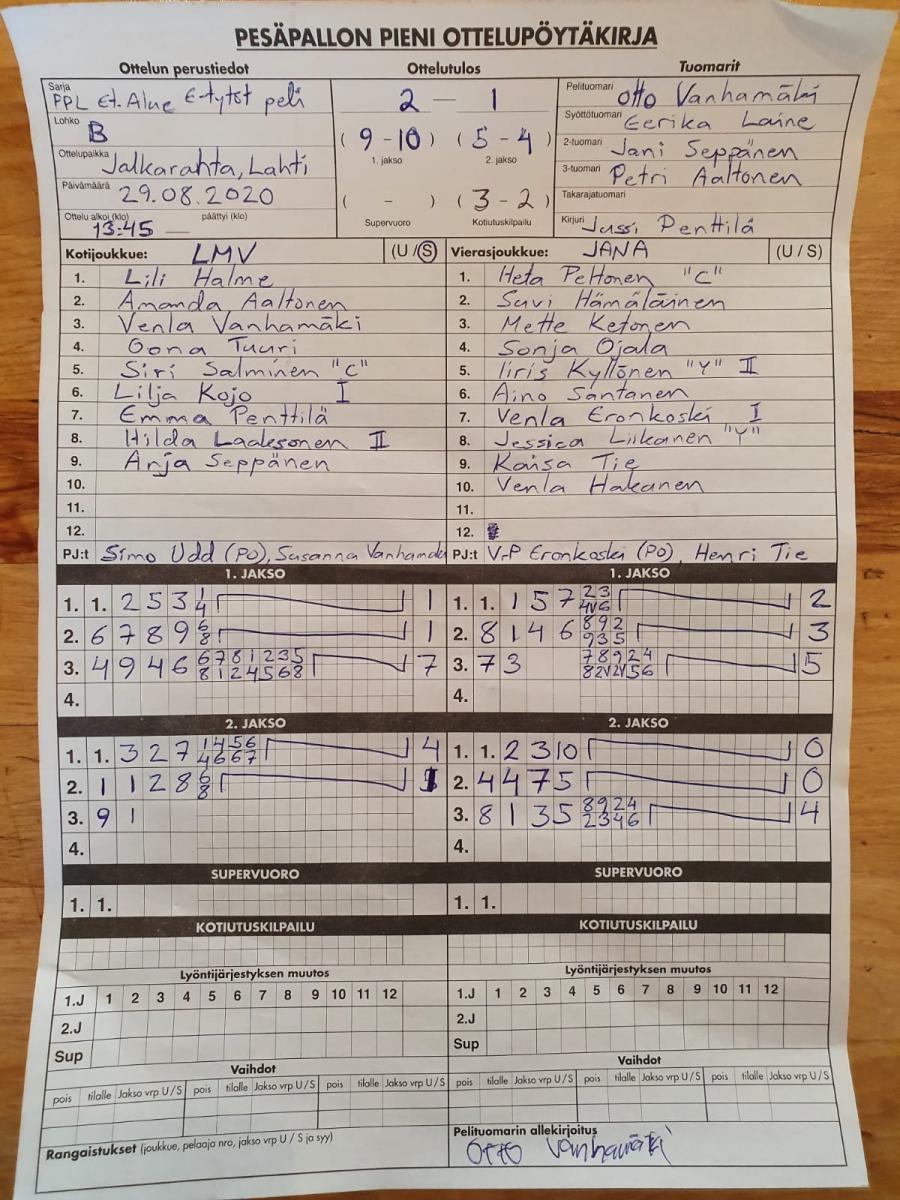 PESÄPALLON PIENI OTTELUPÖYTÄKIRJA
Ottelun perustiedot Ottelutulos Tuomarit
Sarja PPL Et. Alue E-tytöt peli
Lohko B
Ottelupaikka Jalkarahta, Lahti
Päivämäärä 29.08.2020
Ottelu alkoi (klo) 13:45 päättyi (klo) —
2 — 1
( 9 - 10 ) ( 5 - 4 )
1. jakso 2. jakso
( - ) ( 3 - 2 )
Supervuoro Kotiutuskilpailu
Pelituomari Otto Vanhamäki
Syöttötuomari Eerika Laine
2-tuomari Jani Seppänen
3-tuomari Petri Aaltonen
Takarajatuomari
Kirjuri Jussi Penttilä
Kotijoukkue: LMV (U / S)
1. Lili Halme
2. Amanda Aaltonen
3. Venla Vanhamäki
4. Oona Tuuri
5. Siri Salminen "C"
6. Lilja Kojo I
7. Emma Penttilä
8. Hilda Laaksonen II
9. Anja Seppänen
10.
11.
12.
PJ:t Simo Udd (PO), Susanna Vanhamäki
Vierasjoukkue: JANA (U / S)
1. Heta Peltonen "C"
2. Suvi Hämäläinen
3. Mette Ketonen
4. Sonja Ojala
5. Iiris Kyllönen "Y" II
6. Aino Santanen
7. Venla Eronkoski I
8. Jessica Liikanen "Y"
9. Kaisa Tie
10. Venla Hakanen
11.
12.
PJ:t V-P Eronkoski (PO), Henri Tie
1. JAKSO
1. 1. 2 5 3 1 4 1
2. 6 7 8 9 6 8 1
3. 4 9 4 6 6 7 8 1 2 3 5 8 1 2 4 5 6 8 7
4.
1. JAKSO
1. 1. 1 5 7 2 3 4 6 2
2. 8 1 4 6 8 9 2 9 3 5 3
3. 7 3 7 8 9 2 4 5
4.
2. JAKSO
1. 1. 3 2 7 1 4 5 6 4 6 6 7 4
2. 1 1 2 8 6 8 1
3. 9 1
4.
2. JAKSO
1. 1. 2 3 10 0
2. 4 4 7 5 0
3. 8 1 3 5 8 9 2 4 2 3 4 6 4
4.
SUPERVUORO SUPERVUORO
1. 1. 1. 1.
KOTIUTUSKILPAILU KOTIUTUSKILPAILU
Lyöntijärjestyksen muutos Lyöntijärjestyksen muutos
1.J 1 2 3 4 5 6 7 8 9 10 11 12 1.J 1 2 3 4 5 6 7 8 9 10 11 12
2.J 2.J
Sup Sup
Vaihdot Vaihdot
pois tilalle Jakso vrp U / S pois tilalle Jakso vrp U / S pois tilalle Jakso vrp U / S pois tilalle Jakso vrp U / S pois tilalle Jakso vrp U / S pois tilalle Jakso vrp U / S
Rangaistukset (joukkue, pelaaja nro, jakso vrp U / S ja syy)
Pelituomarin allekirjoitus
Otto Vanhamäki